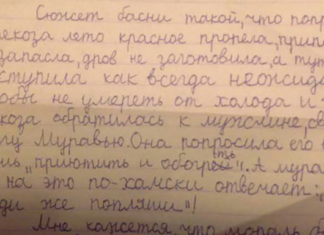 Сюжет басни такой, что попр
екоза лето красное пропела, прип
запасла, дров не заготовила, а тут
ступила как всегда неожида
обы не умереть от холода и
коза обратилась к мужчине, св
му Муравью. Она попросила его в
нь, "приютить и обогреть". А мура
на это по-хамски отвечает:
ди же попляши"!
Мне кажется что мораль